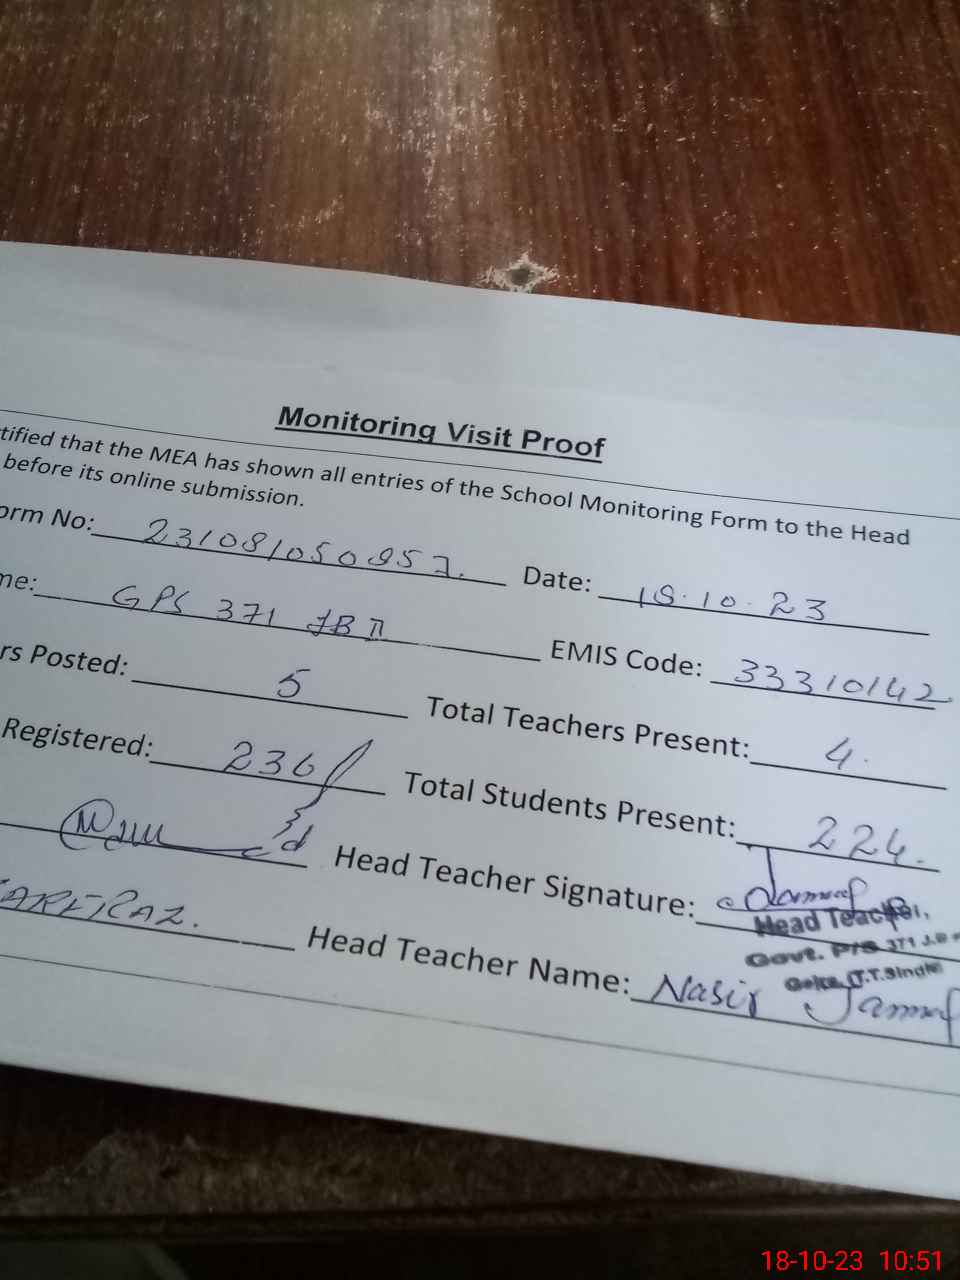 Monitoring Visit Proof
tified that the MEA has shown all entries of the School Monitoring Form to the Head
before its online submission.
orm No: 231081050857. Date: 18.10.23
me: GPS 371 JB II EMIS Code: 33310142
rs Posted: 5 Total Teachers Present: 4.
Registered: 236 Total Students Present: 224.
Head Teacher Signature:
Head Teacher,
Govt. P/S 371 J.B
Gojra, (T.T.Singh)
Head Teacher Name: Nasir
18-10-23 10:51